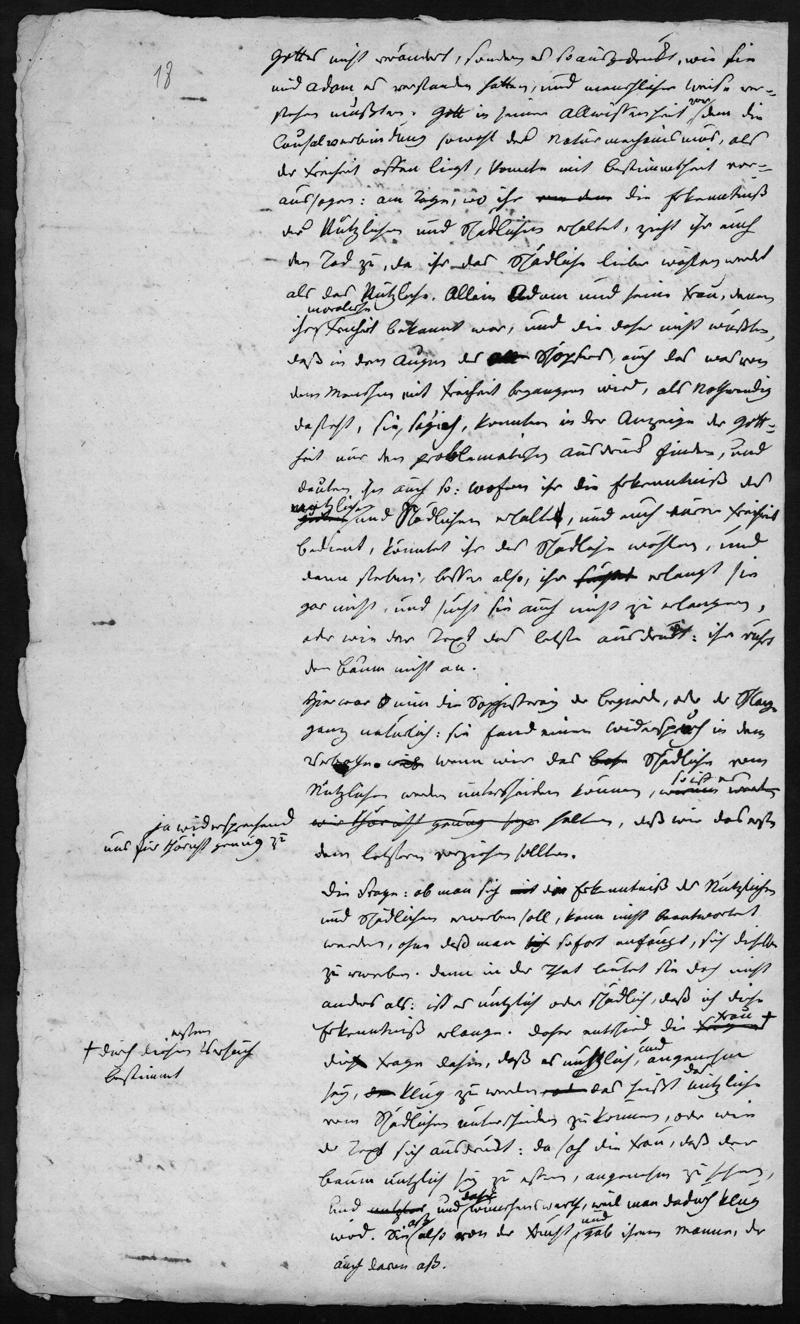 18
Gottes nicht verändert, sondern es so ausgedrükt, wie sie
und Adam es verstanden hatten, und menschlicher Weise ver-
stehen mußten. Gott in seiner Allwissenheit vor dem die
Causalverbindung sowohl des Naturmechanismus, als
der Freiheit offen ligt, konnte mit Bestimmtheit vor-
aussagen: am Tage, wo ihr die Erkenntniß
des Nützlichen und Schädlichen erhaltet, zieht ihr euch
den Tod zu, da ihr das Schädliche lieber wählen werdet
als das Nützliche. Allein Adam und seine Frau, denen
moralische
ihre Freiheit bekannt war, und die daher nicht wußten,
daß in den Augen des Schöpfers, auch das was von
dem Menschen mit Freiheit begangen wird, als Nothwendig
dasteht, sie, sag ich, konnten in der Anzeige der Gott-
heit nur den problematischen Ausdruck finden, und
deuten ihn auch so: wofern ihr die Erkenntniß des
nützlichen
und Schädlichen erhaltet, und euch eurer Freiheit
bedient, könntet ihr das Schädliche wählen, und
dann sterben; besser also, ihr erlangt sie
gar nicht, und sucht sie auch nicht zu erlangen,
oder wie der Text das letzte ausdrükt: ihr rührt
den Baum nicht an.
Hier war nun die Sophisterei der Begierde, oder der Schlange
ganz natürlich: sie fand einen Widerspruch in dem
Verbothe. wenn wir das Schädliche vom
Nützlichen werden unterscheiden können, so ist es
ja widersprechend
uns für thöricht genug zu
halten, daß wir das erste
dem letztern vorziehen sollten.
Die Frage: ob man sich die Erkenntniß des Nützlichen
und Schädlichen erwerben soll, kann nicht beantwortet
werden, ohne daß man sofort anfängt, sich dieselbe
zu erwerben. denn in der That lautet sie doch nicht
anders als: ist es nützlich oder schädlich, daß ich diese
Erkenntniß erlange. Daher entschied die Frau †
† durch diesen ersten Versuch
bestimmt
die Frage dahin, daß es nützlich, und angenehm
sey, klug zu werden das heißt das nützliche
vom Schädlichen unterscheiden zu können, oder wie
der Text sich ausdrükt: da sah die Frau, daß der
Baum nützlich sey zu essen, angenehm zu sehen,
und und daß wünschenswerth, weil man dadurch klug
wird. Sie aß also von der Frucht, und gab ihrem Manne, der
auch davon aß.